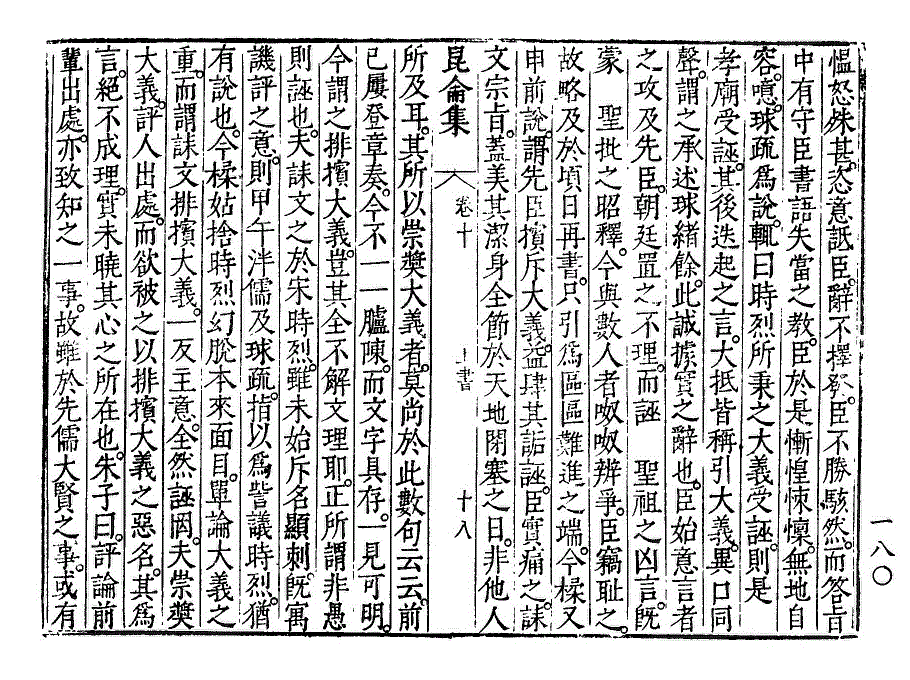 愠怒殊甚。恣意詆臣。辭不擇發。臣不勝駭然。而答旨
中有守臣書語失當之教。臣於是慚惶悚懍。無地自
容。噫。球疏爲說。輒曰時烈所秉之大義受誣。則是
孝廟受誣。其後迭起之言。大抵皆稱引大義。異口同
聲。謂之承述球緖餘。此誠據實之辭也。臣始意言者
之攻及先臣。朝廷置之不理。而誣 聖祖之凶言。旣
蒙 聖批之昭釋。今與數人者呶呶辨爭。臣竊耻之。
故略及於頃日再書。只引爲區區難進之端。今橾又
申前說。謂先臣擯斥大義。益肆其詬誣。臣實痛之。誄
文宗旨。蓋美其潔身全節於天地閉塞之日。非他人
昆侖集 卷十 上書 十八
所及耳。其所以崇奬大義者。莫尙於此數句云云。前
已屢登章奏。今不一一臚陳。而文字具存。一見可明。
今謂之排擯大義。豈其全不解文理耶。正所謂非愚
則誣也。夫誄文之於宋時烈。雖未始斥名顯刺。旣寓
譏評之意。則甲午泮儒及球疏。指以爲訾議時烈。猶
有說也。今橾姑捨時烈幻脫本來面目。單論大義之
重。而謂誄文排擯大義。一反主意。全然誣罔。夫崇奬
大義。評人出處。而欲被之以排擯大義之惡名。其爲
言。絕不成理。實未曉其心之所在也。朱子曰。評論前
輩出處。亦致知之一事。故雖於先儒大賢之事。或有
一八〇